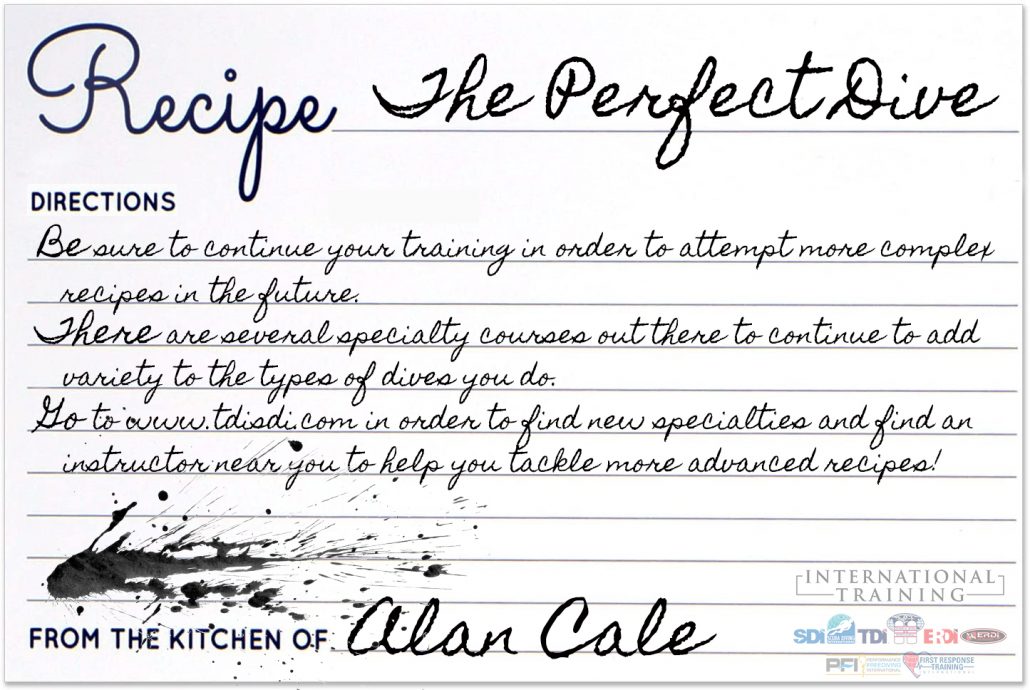 Recipe The Perfect Dive
DIRECTIONS
Be sure to continue your training in order to attempt more complex
recipes in the future.
There are several specialty courses out there to continue to add
variety to the types of dives you do.
Go to www.tdisdi.com in order to find new specialties and find an
instructor near you to help you tackle more advanced recipes!
INTERNATIONAL
TRAINING
FROM THE KITCHEN OF: Alan Cale
SDI TDI ERDI ERDI
PFI PERFORMANCE FREEDIVING INTERNATIONAL FIRST RESPONSE TRAINING